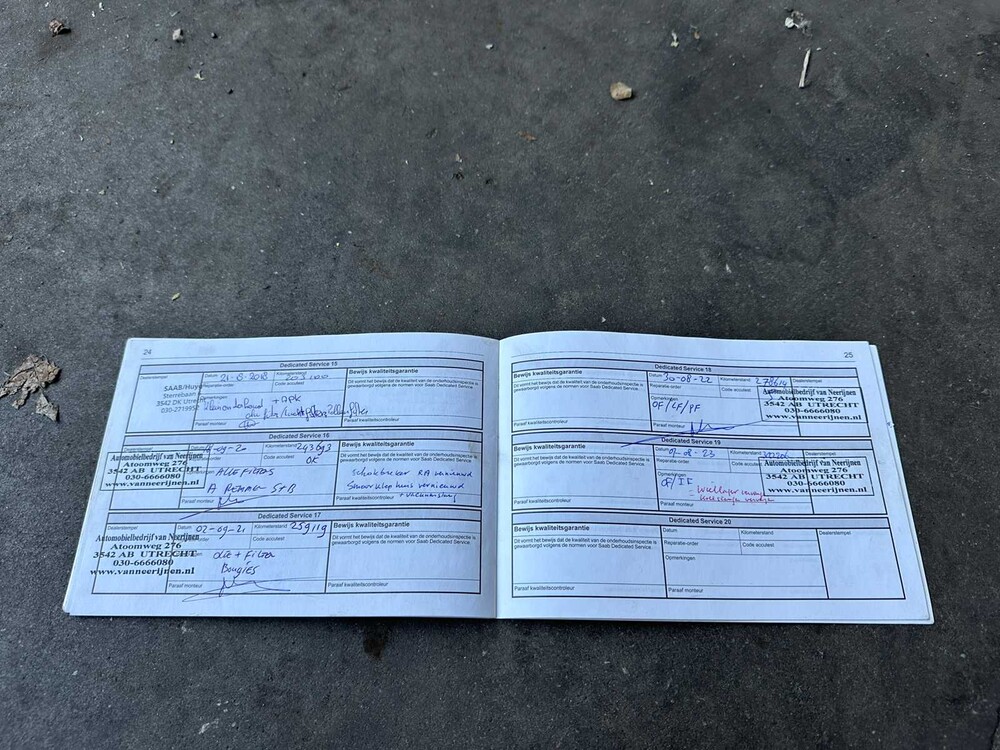 24
Dedicated Service 15
Dealerstempel
Datum 21-8-2018
Kilometerstand
Reparatie-order
Code acculeest
SAAB/Huy
Sterrebaan
3542 DK Utrec
030-271395
+ APK
Bewijs kwaliteitsgarantie
Dit vormt het bewijs dat de kwaliteit van de onderhoudsinspectie is
gewaarborgd volgens de normen voor Saab Dedicated Service.
Dedicated Service 16
-09-20
243693
Code acculeest
OK
Automobielbedrijf van Neerijnen
Atoomweg 276
3542 AB UTRECHT
030-6666080
www.vanneerijnen.nl
ALLE FILTERS
Paraaf monteur
Bewijs kwaliteitsgarantie
Schokbreker RA vernieuwd
Smoorklephuis vernieuwd
Paraaf kwaliteitscontroleur
Dedicated Service 17
Dealerstempel
Datum 02-09-21
Kilometerstand 259119
Code acculeest
Automobielbedrijf van Neerijnen
Atoomweg 276
3542 AB UTRECHT
030-6666080
www.vanneerijnen.nl
Olie + Filter
Bougies
Paraaf monteur
Bewijs kwaliteitsgarantie
Dit vormt het bewijs dat de kwaliteit van de onderhoudsinspectie is
gewaarborgd volgens de normen voor Saab Dedicated Service.
Paraaf kwaliteitscontroleur
25
Dedicated Service 18
Bewijs kwaliteitsgarantie
Dit vormt het bewijs dat de kwaliteit van de onderhoudsinspectie is
gewaarborgd volgens de normen voor Saab Dedicated Service.
Paraaf kwaliteitscontroleur
Datum 30-08-22
Kilometerstand
Reparatie-order
Code acculeest
Opmerkingen
OF/CF/PF
Paraaf monteur
Dealerstempel
Automobielbedrijf van Neerijnen
Atoomweg 276
3542 AB UTRECHT
030-6666080
www.vanneerijnen.nl
Dedicated Service 19
Bewijs kwaliteitsgarantie
Dit vormt het bewijs dat de kwaliteit van de onderhoudsinspectie is
gewaarborgd volgens de normen voor Saab Dedicated Service.
Paraaf kwaliteitscontroleur
Kilometerstand
Reparatie-order
Code acculeest
Opmerkingen
OF/IF
Paraaf monteur
Automobielbedrijf van Neerijnen
Atoomweg 276
3542 AB UTRECHT
030-6666080
www.vanneerijnen.nl
Dedicated Service 20
Bewijs kwaliteitsgarantie
Dit vormt het bewijs dat de kwaliteit van de onderhoudsinspectie is
gewaarborgd volgens de normen voor Saab Dedicated Service.
Paraaf kwaliteitscontroleur
Datum
Kilometerstand
Reparatie-order
Code acculeest
Opmerkingen
Paraaf monteur
Dealerstempel